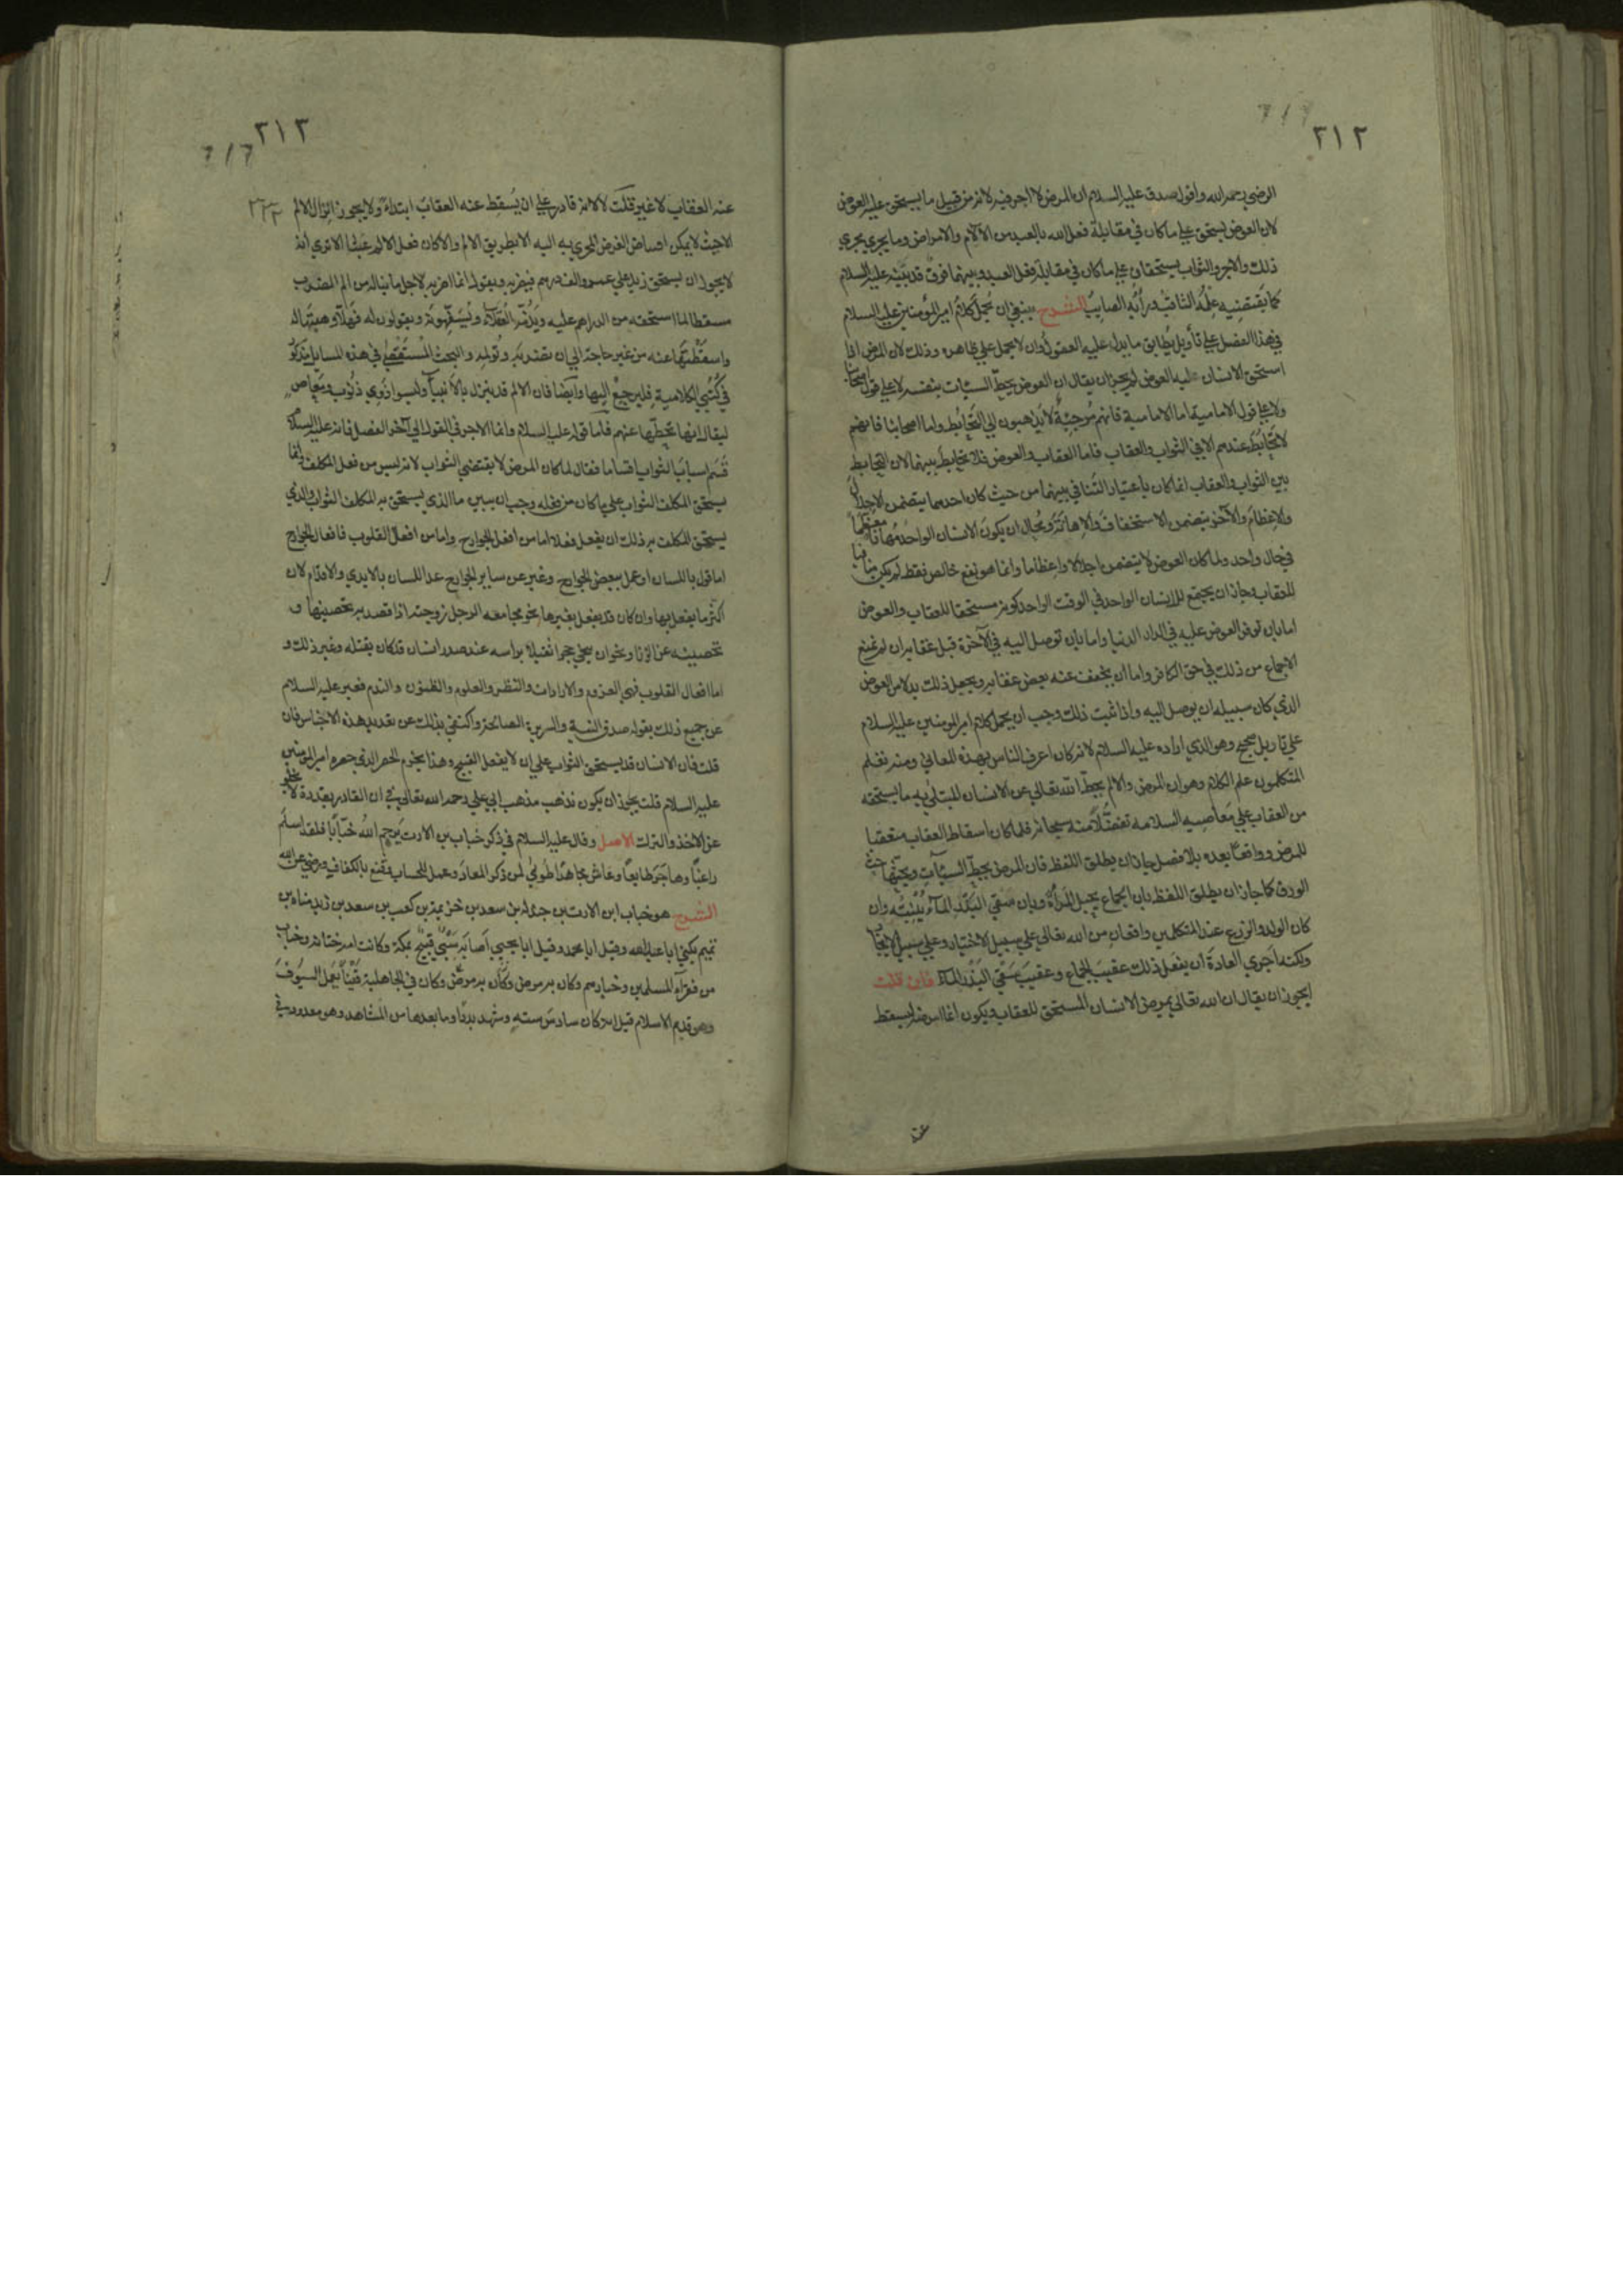 ٢١٢
الرضي رحمه الله واقول صدق عليه السلام ان المرض لا اجر فيه لانه من قبيل ما يستحق عليه العوض
لان العوض يستحق على ما كان في مقابلة فعل الله بالعبد من الآلام والامراض وما يجري مجري
ذلك والاجر والثواب يستحقان على ما كان في مقابلة فعل العبد وبينهما فرق قد بينه عليه السلام
كما يقتضيه علمه الثاقب ورأيه الصايب الشرح ينبغي ان يحمل كلام امير المؤمنين عليه السلام
في هذا الفصل على تأويل يطابق ما يدل عليه العقول وان لا يحمل على ظاهره وذلك لان المرض اذا
استحق الانسان عليه العوض لم يجز ان يقال ان العوض يحط السيئات بنفسه لا على قول اصحابنا
ولا على قول الامامية اما الامامية فانهم مرجئة لا يذهبون الي التحابط واما اصحابنا فانهم
لا تحابط عندهم الا في الثواب والعقاب فاما العقاب والعوض فلا تحابط بينهما لان التحابط
بين الثواب والعقاب انما كان باعتبار التنافي بينهما من حيث كان احدهما يتضمن الاجلال
والاعظام والآخر يتضمن الاستخفاف والاهانة ومحال ان يكون الانسان الواحد مهانا معظما
في حال واحد ولما كان العوض لا يتضمن اجلالا واعظاما وانما هو نفع خالص فقط لم يكن منافيا
للعقاب وجاز ان يجتمع للانسان الواحد في الوقت الواحد كونه مستحقا للعقاب والعوض
اما بان توفر العوض عليه في الدار الدنيا واما بان توصل اليه في الآخرة قبل عقابه ان لم يمنع
الاجماع من ذلك في حق الكافر واما ان يخفف عنه بعض عقابه ويجعل ذلك بدلا من العوض
الذي كان سبيله ان يوصل اليه واذا ثبت ذلك وجب ان يحمل كلام امير المومنين عليه السلام
على تاويل صحيح وهو الذي اراده عليه السلام لانه كان اعرف الناس بهذه المعاني ومنه تعلم
المتكلمون علم الكلام وهو ان المرض والالم يحط الله تعالي عن الانسان المبتلي به ما يستحقه
من العقاب على معاصيه السالفة تفضلا منه سبحانه فلما كان اسقاط العقاب متعقبا
للمرض وواقعا بعده بلا فصل جاز ان يطلق اللفظ فان المرض يحط السيئات ويحتها حت
الورق كما جاز ان يطلق اللفظ بان الجماع يحبل المرأة وبان سقي البذر الماء ينبته وان
كان الولد والزرع عند المتكلمين واقعان من الله تعالي على سبيل الاختيار وعلي سبيل الايجاب
ولكنه اجري العادة ان يفعل ذلك عقيب الجماع وعقيب سقي البذر الماء فان قلت
ايجوز ان يقال ان الله تعالي يمرض الانسان المستحق للعقاب ويكون انما امرضه ليسقط
٢١٣
عنه العقاب لا غير قلت لا لانه قادر على ان يسقط عنه العقاب ابتداء ولا يجوز انزال الالم
الا حيث لا يمكن اقتناص الغرض المجري به اليه الا بطريق الالم والا كان فعل الالم عبثا الا تري انه
لا يجوز ان يستحق زيد على عمرو الف درهم فيضربه ويقول انما اضربه لاجل ما يناله من الم الضرب
مسقطا لما استحقه من الدراهم عليه ويذمه العقلاء ويسفهونه ويقولون له فهلا وهبتها له
واسقطتها عنه من غير حاجة الي ان تضربه وتولمه والبحث المستقصي في هذه المسايل مذكور
في كتبي الكلامية فليرجع اليها وايضا فان الالم قد ينزل بالانبياء وليسوا ذوي ذنوب ومعاص
ليقال انها تحطها عنهم فاما قوله عليه السلام وانما الاجر في القول الي آخر الفصل فانه عليه السلام
قسم اسباب الثواب اقساما فقال لما كان المرض لا يقتضي الثواب لانه ليس من فعل المكلف وانما
يستحق المكلف الثواب على ما كان من فعله وجب ان يبين ما الذي يستحق به المكلف الثواب والذي
يستحق المكلف به ذلك ان يفعل فعلا اما من افعال الجوارح واما من افعال القلوب فافعال الجوارح
اما قول باللسان او عمل ببعض الجوارح وعبر عن ساير الجوارح عدا اللسان بالايدي والاقدام لان
اكثر ما يفعل بها وان كان قد يفعل بغيرها نحو مجامعة الرجل زوجته اذا قصد به تحصينها و
تحصينه عن الزنا ونحو ان ينحي حجرا ثقيلا براسه عند صدر انسان قد كان يقتله وغير ذلك و
اما افعال القلوب فهي العزوم والارادات والنظر والعلوم والظنون والندم فعبر عليه السلام
عن جميع ذلك بقوله صدق النية والسريرة الصالحة واكتفي بذلك عن تعديد هذه الاجناس فان
قلت فان الانسان قد يستحق الثواب على ان لا يفعل القبيح وهذا يخرم الحصر الذي حصره امير المومنين
عليه السلام قلت يجوز ان يكون يذهب مذهب ابي علي رحمه الله تعالي في ان القادر بقدرة لا يخلو
عن الاخذ والترك الاصل وقال عليه السلام في ذكر خباب بن الارت يرحم الله خبابا فلقد اسلم
راغبا وهاجر طايعا وعاش مجاهدا طوبي لمن ذكر المعاد وعمل للحساب وقنع بالكفاف ورضي عن الله
الشرح هو خباب ابن الارت بن جندلة بن سعد بن خزيمة بن كعب بن سعد بن زيد مناه بن
تميم يكني ابا عبد الله وقيل ابا محمد وقيل ابا يحيي اصابه سبي فبيع بمكة وكانت امه ختانة وخباب
من فقراء المسلمين وخيارهم وكان به مرض وكان في الجاهلية قينا يعمل السيوف
وهو قديم الاسلام قيل انه كان سادس ستة وشهد بدرا وما بعدها من المشاهد وهو معدود في